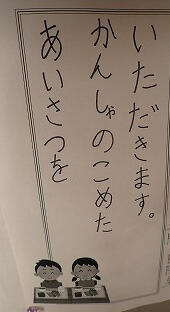 いただきます。
かんしゃのこめた
あいさつを